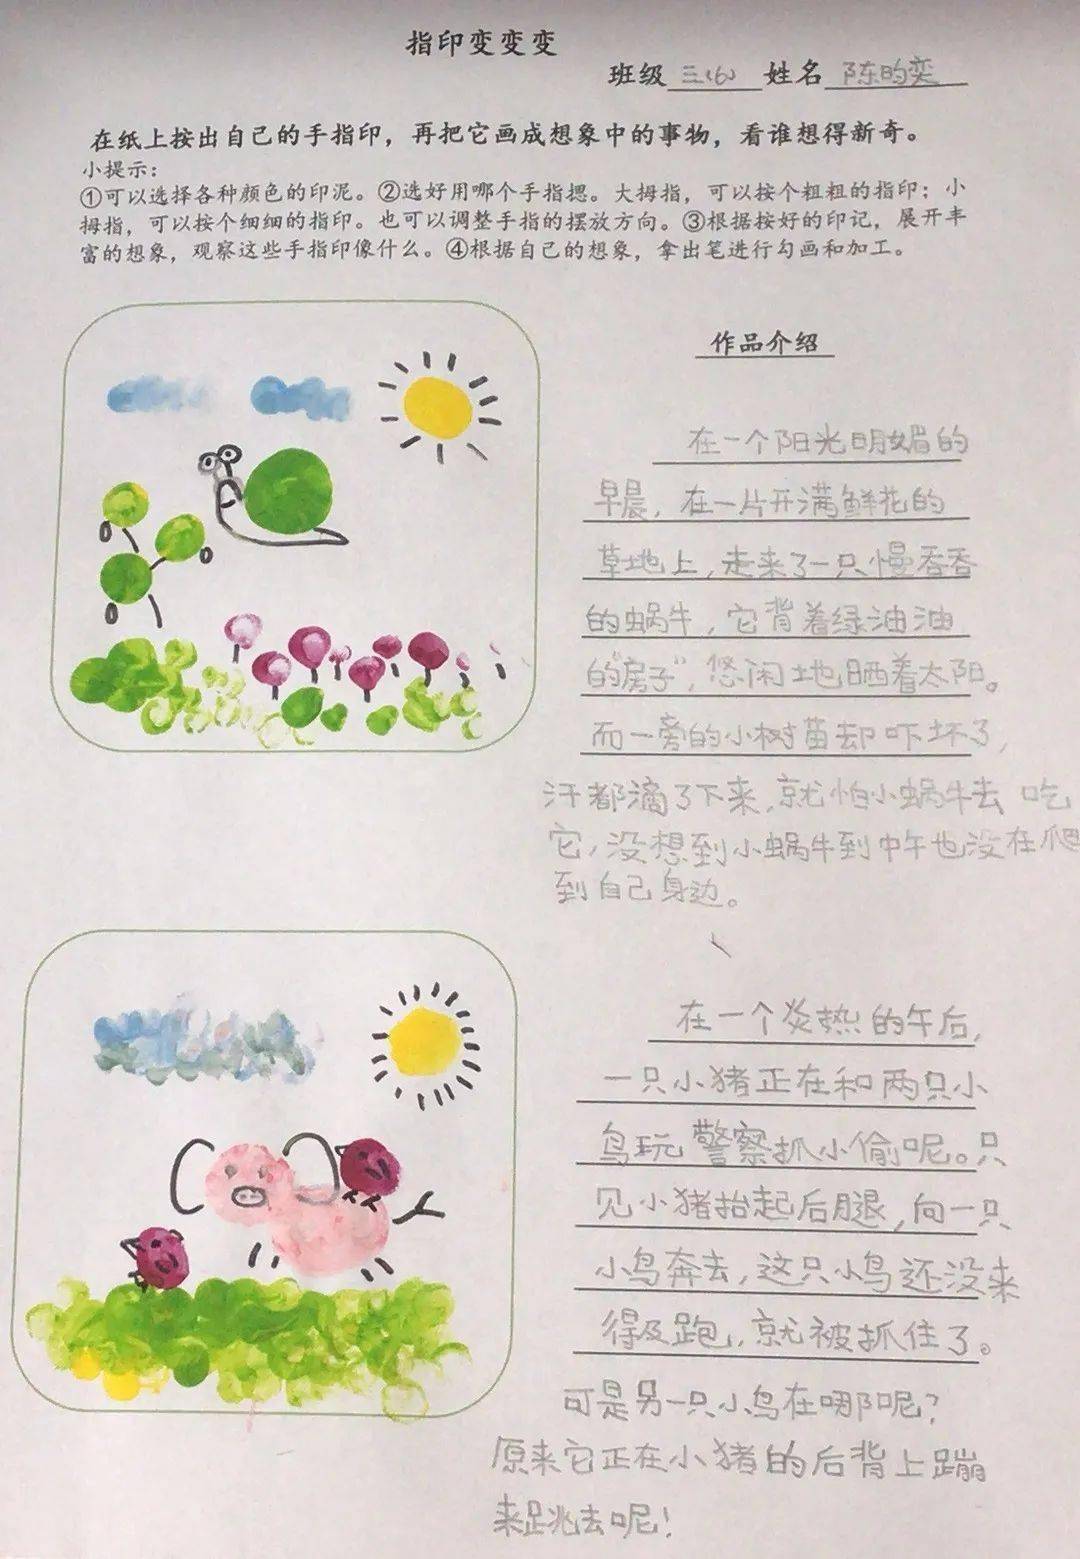 指印变变变
班级 三(6) 姓名 陈昀奕
在纸上按出自己的手指印，再把它画成想象中的事物，看谁想得新奇。
小提示：
①可以选择各种颜色的印泥。②选好用哪个手指摁。大拇指，可以按个粗粗的指印；小
拇指，可以按个细细的指印。也可以调整手指的摆放方向。③根据按好的印记，展开丰
富的想象，观察这些手指印像什么。④根据自己的想象，拿出笔进行勾画和加工。
作品介绍
在一个阳光明媚的
早晨，在一片开满鲜花的
草地上，走来了一只慢吞吞
的蜗牛，它背着绿油油
的“房子”，悠闲地晒着太阳。
而一旁的小树苗却吓坏了，
汗都滴了下来，就怕小蜗牛去吃
它，没想到小蜗牛到中午也没在爬
到自己身边。
在一个炎热的午后，
一只小猪正在和两只小
鸟玩警察抓小偷呢。只
见小猪抬起后腿，向一只
小鸟奔去，这只小鸟还没来
得及跑，就被抓住了。
可是另一只小鸟在哪呢？
原来它正在小猪的后背上蹦
来跳去呢！